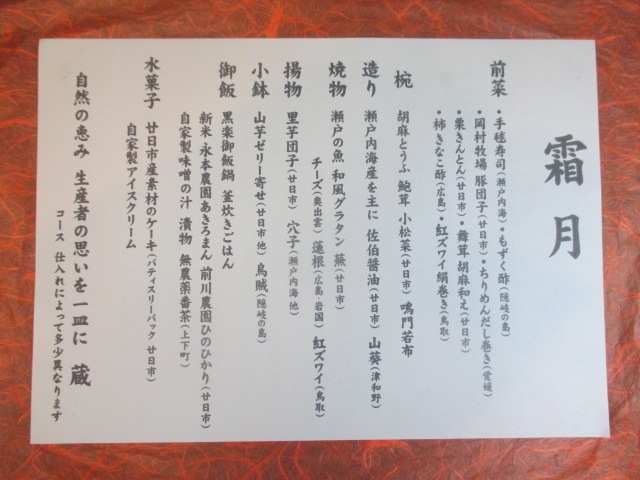 霜月
前菜 ・手毬寿司(瀬戸内海)・もずく酢(隠岐の島)
・岡村牧場 豚団子(廿日市)・ちりめんだし巻き(愛媛)
・栗きんとん(廿日市)・舞茸 胡麻和え(廿日市)
・柿きなこ酢(広島)・紅ズワイ絹巻き(鳥取)
椀 胡麻とうふ 鮑茸 小松菜(廿日市) 鳴門若布
造り 瀬戸内海産を主に 佐伯醤油(廿日市) 山葵(津和野)
焼物 瀬戸の魚 和風グラタン 蕪(廿日市)
チーズ(奥出雲) 蓮根(広島 岩国) 紅ズワイ(鳥取)
揚物 里芋団子(廿日市) 穴子(瀬戸内海 他)
小鉢 山芋ゼリー寄せ(廿日市 他) 烏賊(隠岐の島)
御飯 黒楽御飯鍋 釜炊きごはん
新米 永本農園あきろまん 前川農園ひのひかり(廿日市)
自家製味噌の汁 漬物 無農薬番茶(上下町)
水菓子 廿日市産素材のケーキ(パティスリーパック 廿日市)
自家製アイスクリーム
自然の恵み 生産者の思いを一皿に 蔵
コース 仕入れによって多少異なります